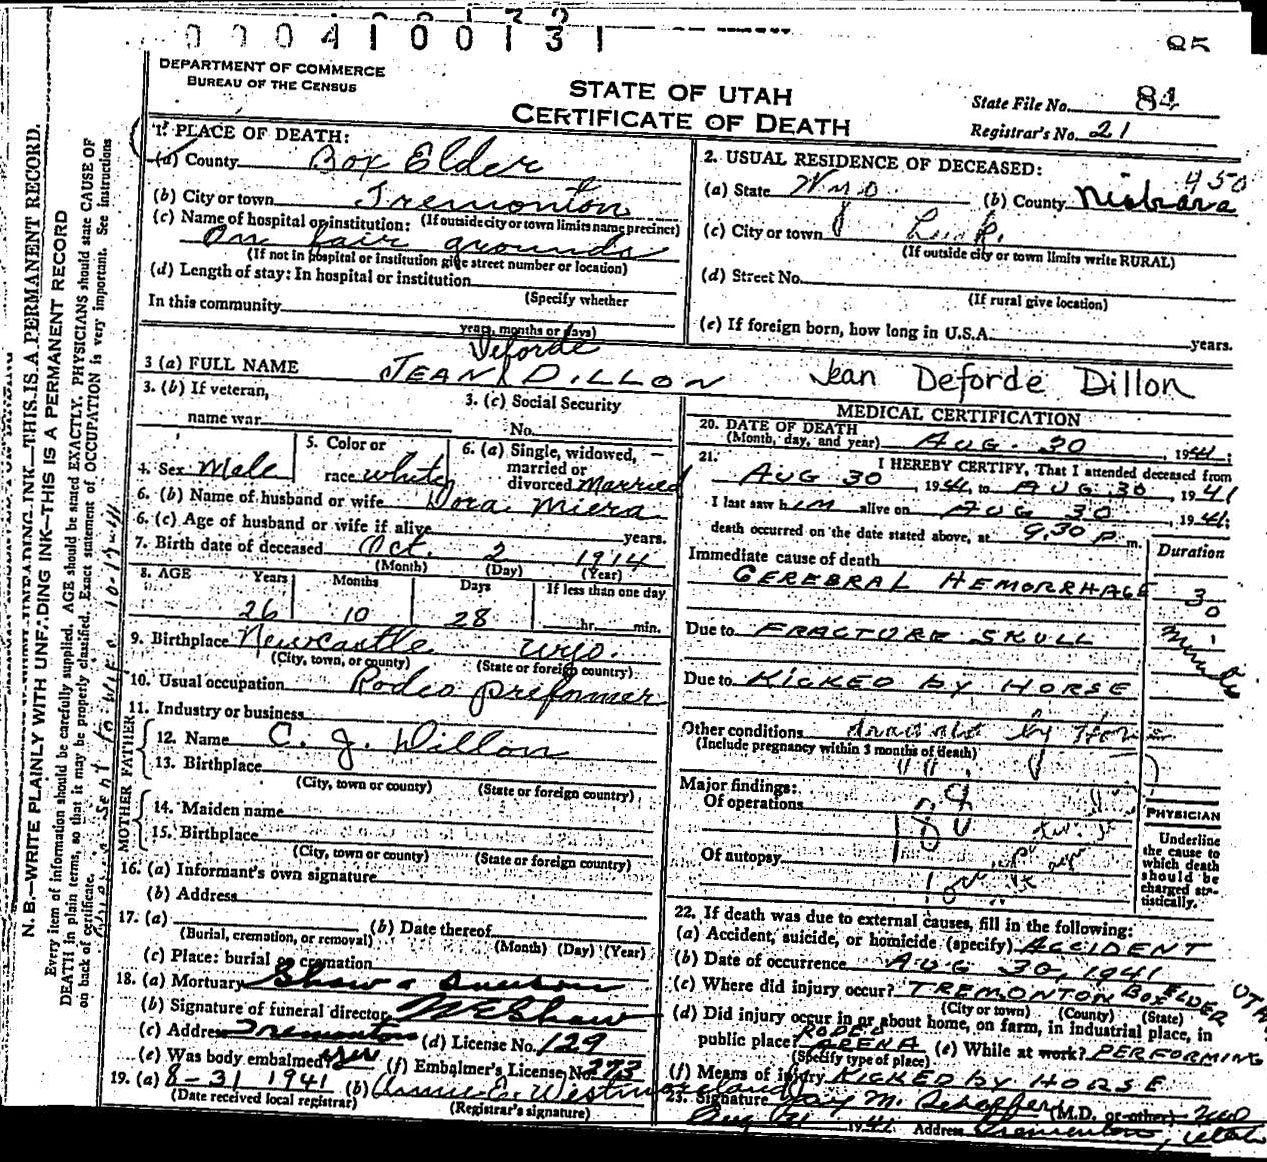 0004100131
85
DEPARTMENT OF COMMERCE
BUREAU OF THE CENSUS
STATE OF UTAH
CERTIFICATE OF DEATH
State File No. 84
Registrar's No. 21
1. PLACE OF DEATH:
(a) County Box Elder
(b) City or town Tremonton
(If outside city or town limits name precinct)
(c) Name of hospital or institution:
On fair grounds
(If not in hospital or institution give street number or location)
(d) Length of stay: In hospital or institution
(Specify whether
In this community
years, months or days)
2. USUAL RESIDENCE OF DECEASED:
450
(a) State Wyo (b) County Niobrara
(c) City or town Lusk.
(If outside city or town limits write RURAL)
(d) Street No.
(If rural give location)
(e) If foreign born, how long in U.S.A. years.
Deforde
3 (a) FULL NAME JEAN DILLON Jean Deforde Dillon
3. (b) If veteran,
name war
3. (c) Social Security
No.
4. Sex Male
5. Color or
race white
6. (a) Single, widowed,
married or
divorced Married
6. (b) Name of husband or wife Dora Miera
6. (c) Age of husband or wife if alive years.
7. Birth date of deceased Oct. 2 1914
(Month) (Day) (Year)
8. AGE Years Months Days If less than one day
26 10 28 hr. min.
9. Birthplace Newcastle Wyo.
(City, town, or county) (State or foreign country)
10. Usual occupation Rodeo preformer
11. Industry or business
FATHER
12. Name C. J. Dillon
13. Birthplace
(City, town or county) (State or foreign country)
MOTHER
14. Maiden name
15. Birthplace
(City, town or county) (State or foreign country)
16. (a) Informant's own signature
(b) Address
17. (a) (b) Date thereof
(Burial, cremation, or removal) (Month) (Day) (Year)
(c) Place: burial or cremation
18. (a) Mortuary Shaw &
(b) Signature of funeral director Shaw
(c) Address Tremonton (d) License No. 129
(e) Was body embalmed? yes (f) Embalmer's License No. 273
19. (a) 8-31 1941 (b) Annie E. Westmoreland
(Date received local registrar) (Registrar's signature)
MEDICAL CERTIFICATION
20. DATE OF DEATH
(Month, day, and year) AUG. 30, 1941;
21. I HEREBY CERTIFY, That I attended deceased from
AUG 30, 1941, to AUG 30, 1941
I last saw him alive on AUG 30, 1941;
death occurred on the date stated above, at 9.30 P m.
Duration
Immediate cause of death
CEREBRAL HEMORRHAGE 30
minutes
Due to FRACTURE SKULL
Due to KICKED BY HORSE
Other conditions by Horse
(Include pregnancy within 3 months of death)
Major findings:
Of operations
Of autopsy
PHYSICIAN
Underline
the cause to
which death
should be
charged sta-
tistically.
22. If death was due to external causes, fill in the following:
(a) Accident, suicide, or homicide (specify) ACCIDENT
(b) Date of occurrence AUG 30, 1941
(c) Where did injury occur? TREMONTON BOX ELDER UTAH
(City or town) (County) (State)
(d) Did injury occur in or about home, on farm, in industrial place, in
public place? RODEO ARENA (e) While at work? PERFORMING
(Specify type of place)
(f) Means of injury KICKED BY HORSE
23. Signature Jay M. Schaffer (M.D. or other)
Aug 31 1941 Address Tremonton, Utah
N. B.—WRITE PLAINLY WITH UNFADING INK—THIS IS A PERMANENT RECORD.
Every item of information should be carefully supplied. AGE should be stated EXACTLY. PHYSICIANS should state CAUSE OF
DEATH in plain terms, so that it may be properly classified. Exact statement of OCCUPATION is very important. See instructions
on back of certificate.